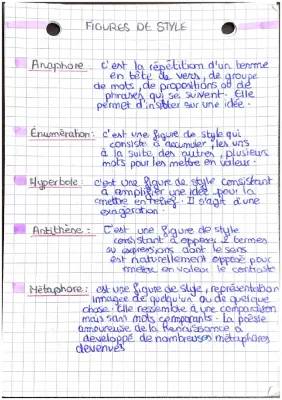 FIGURES DE STYLE
Anaphore : c'est la répétition d'un terme
en tête de vers, de groupe
de mots, de propositions ou de
phrases qui se suivent. Elle
permet d'insister sur une idée.
Énumération : c'est une figure de style qui
consiste à accumuler, les uns
à la suite des autres, plusieurs
mots pour les mettre en valeur.
Hyperbole : c'est une figure de style consistant
à amplifier une idée pour la
mettre en relief. Il s'agit d'une
exagération.
Antithèse : C'est une figure de style
consistant à opposer 2 termes
ou expressions dont le sens
est naturellement opposé pour
mettre en valeur le contraste
Métaphore : est une figure de style, représentation
imagée de quelqu'un ou de quelque
chose. Elle ressemble à une comparaison
mais sans mots comparants. La poésie
amoureuse de la Renaissance a
développé de nombreuses métaphores
devenues